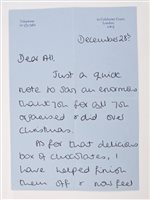 Telephone
London
December 28th
Dear All.
Just a quick
note to say an enormous
thank you for all you
organised & did over
Christmas.
As for that delicious
box of chocolates, I
have helped finish
them off & now feel